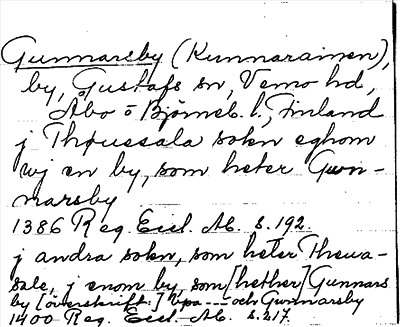 Gunnarsby (Kunnarainen),
by, Gustafs sn, Vemo hd,
Åbo o Björneb. l., Finland
j Thøussala sokn eghom
wj en by, som heter Gwn-
narsby
1386 Reg. Eccl. Ab. s. 192.
j andra sokn, som heter Thewa-
sale, j enom by, som [hether] Gunnars
by [överskrift:] Vpa -- och Gunnarsby
1400 Reg. Eccl. Ab. s. 217.